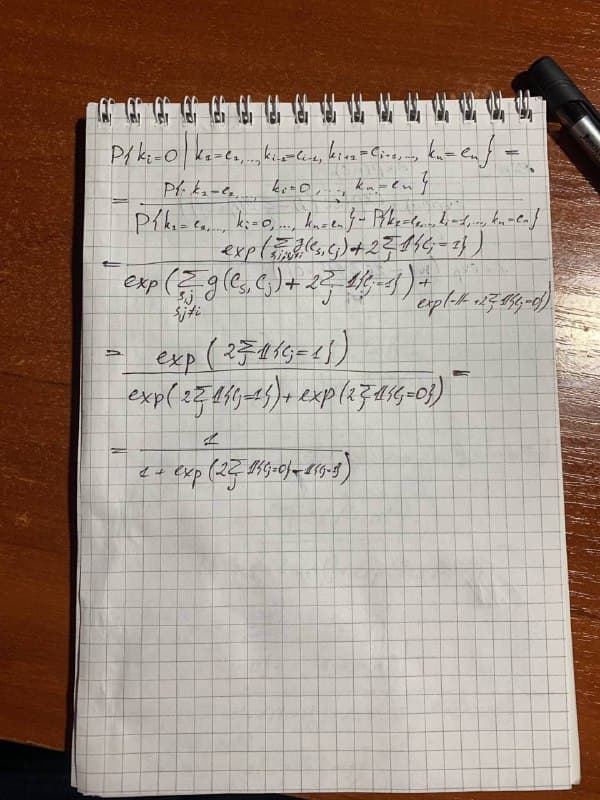 P{ k_i=0 | k_1=c_1,..., k_{i-1}=c_{i-1}, k_{i+1}=c_{i+1},..., k_n=c_n } =
= P{ k_1=c_1, ..., k_i=0, ..., k_n=c_n }
P{ k_1=c_1, ..., k_i=0, ..., k_n=c_n } - P{ k_1=c_1, ..., k_i=1, ..., k_n=c_n }
= exp( Σ_{s,j≠i} g(c_s, c_j) + 2 Σ_j 𝟙{c_j=1} )
exp( Σ_{s,j; s,j≠i} g(c_s, c_j) + 2 Σ_j 𝟙{c_j=1} ) + exp( -||- + 2 Σ_j 𝟙{c_j=0} )
= exp( 2 Σ_j 𝟙{c_j=1} )
exp( 2 Σ_j 𝟙{c_j=1} ) + exp( 2 Σ_j 𝟙{c_j=0} ) =
= 1
1 + exp( 2 Σ_j 𝟙{c_j=0} - 𝟙{c_j=1} )